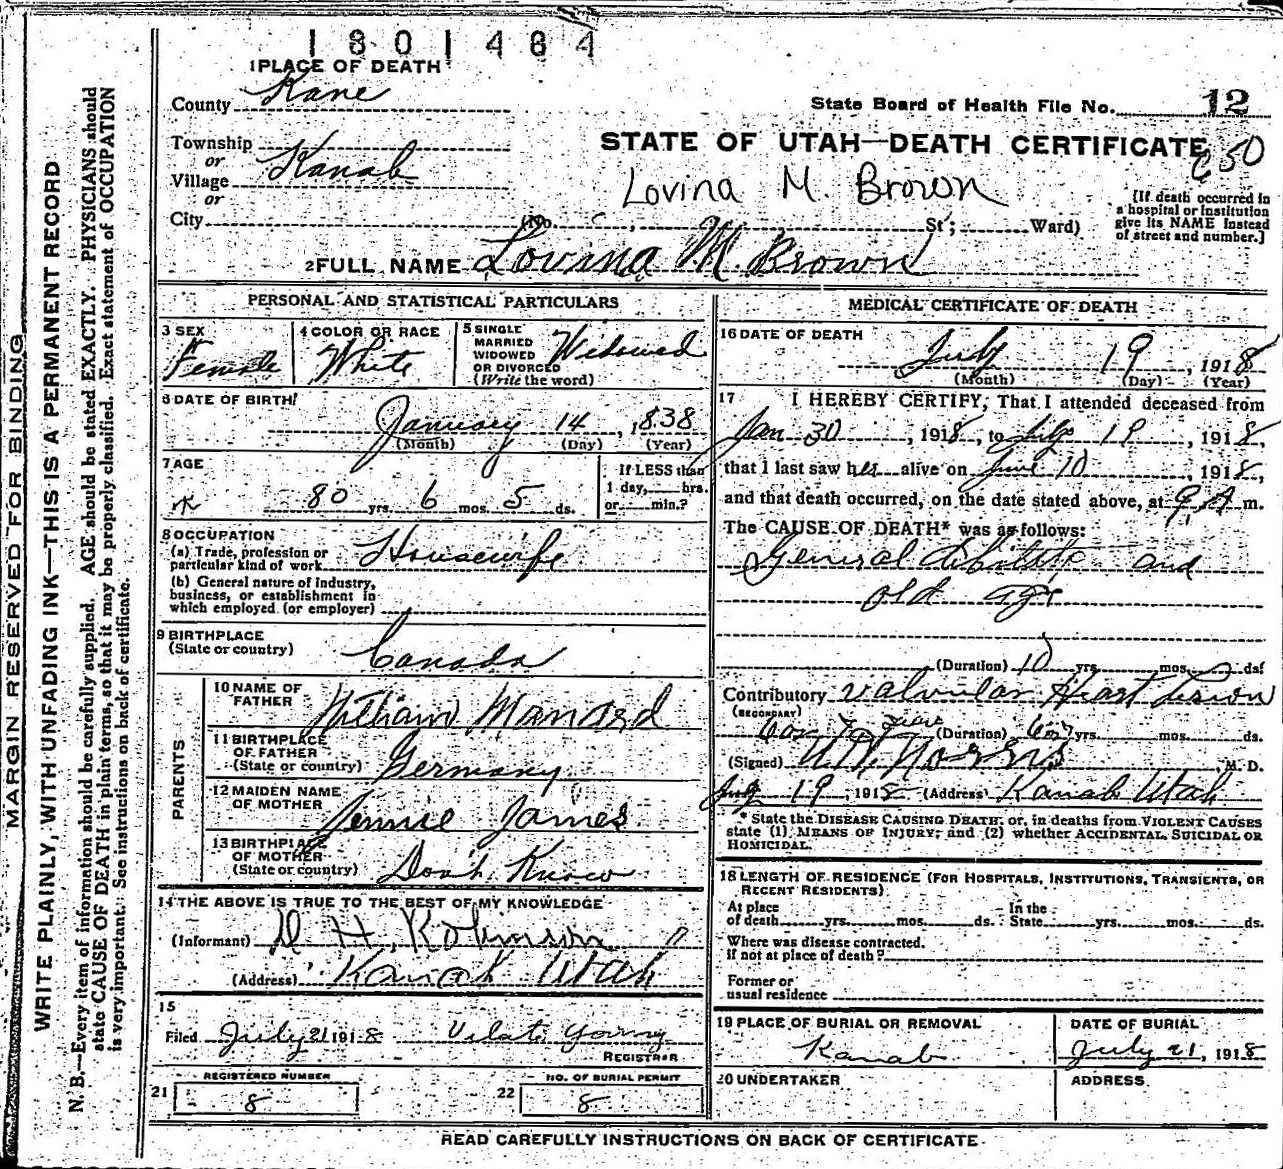 1801484
1 PLACE OF DEATH
County Kane
State Board of Health File No. 12
Township
or
Village Kanab
or
City
STATE OF UTAH—DEATH CERTIFICATE
C 50
Lovina M. Brown
(No. , St; Ward)
[If death occurred in
a hospital or institution
give its NAME instead
of street and number.]
2 FULL NAME Lovina M. Brown
PERSONAL AND STATISTICAL PARTICULARS
3 SEX
Female
4 COLOR OR RACE
White
5 SINGLE
MARRIED
WIDOWED
OR DIVORCED
(Write the word)
Widowed
6 DATE OF BIRTH
January 14, 1838
(Month) (Day) (Year)
7 AGE
80 yrs. 6 mos. 5 ds.
If LESS than
1 day, hrs.
or min.?
8 OCCUPATION
(a) Trade, profession or
particular kind of work Housewife
(b) General nature of industry,
business, or establishment in
which employed (or employer)
9 BIRTHPLACE
(State or country) Canada
PARENTS
10 NAME OF
FATHER William Manard
11 BIRTHPLACE
OF FATHER
(State or country) Germany
12 MAIDEN NAME
OF MOTHER Jennie James
13 BIRTHPLACE
OF MOTHER
(State or country) Don't Know
14 THE ABOVE IS TRUE TO THE BEST OF MY KNOWLEDGE
(Informant) H. Robinson
(Address) Kanab Utah
15
Filed July 21 1918 Vilate Young
REGISTRAR
21 REGISTERED NUMBER
8
22 NO. OF BURIAL PERMIT
8
MEDICAL CERTIFICATE OF DEATH
16 DATE OF DEATH
July 19, 1918
(Month) (Day) (Year)
17 I HEREBY CERTIFY, That I attended deceased from
Jan 30, 1918, to July 19, 1918,
that I last saw her alive on June 10, 1918,
and that death occurred, on the date stated above, at 9 A m.
The CAUSE OF DEATH* was as follows:
General debility and
old age
(Duration) 10 yrs. mos. ds.
Contributory Valvular Heart Lesion
(SECONDARY)
6 or 7 years (Duration) 6 or 7 yrs. mos. ds.
(Signed) Norris, M. D.
July 19, 1918 (Address) Kanab Utah
* State the DISEASE CAUSING DEATH, or, in deaths from VIOLENT CAUSES
state (1) MEANS OF INJURY; and (2) whether ACCIDENTAL, SUICIDAL OR
HOMICIDAL.
18 LENGTH OF RESIDENCE (FOR HOSPITALS, INSTITUTIONS, TRANSIENTS, OR
RECENT RESIDENTS)
At place
of death yrs. mos. ds. In the
State yrs. mos. ds.
Where was disease contracted,
if not at place of death?
Former or
usual residence
19 PLACE OF BURIAL OR REMOVAL
Kanab
DATE OF BURIAL
July 21, 1918
20 UNDERTAKER
ADDRESS
READ CAREFULLY INSTRUCTIONS ON BACK OF CERTIFICATE
MARGIN RESERVED FOR BINDING
WRITE PLAINLY, WITH UNFADING INK—THIS IS A PERMANENT RECORD
N. B.—Every item of information should be carefully supplied. AGE should be stated EXACTLY. PHYSICIANS should
state CAUSE OF DEATH in plain terms, so that it may be properly classified. Exact statement of OCCUPATION
is very important. See instructions on back of certificate.